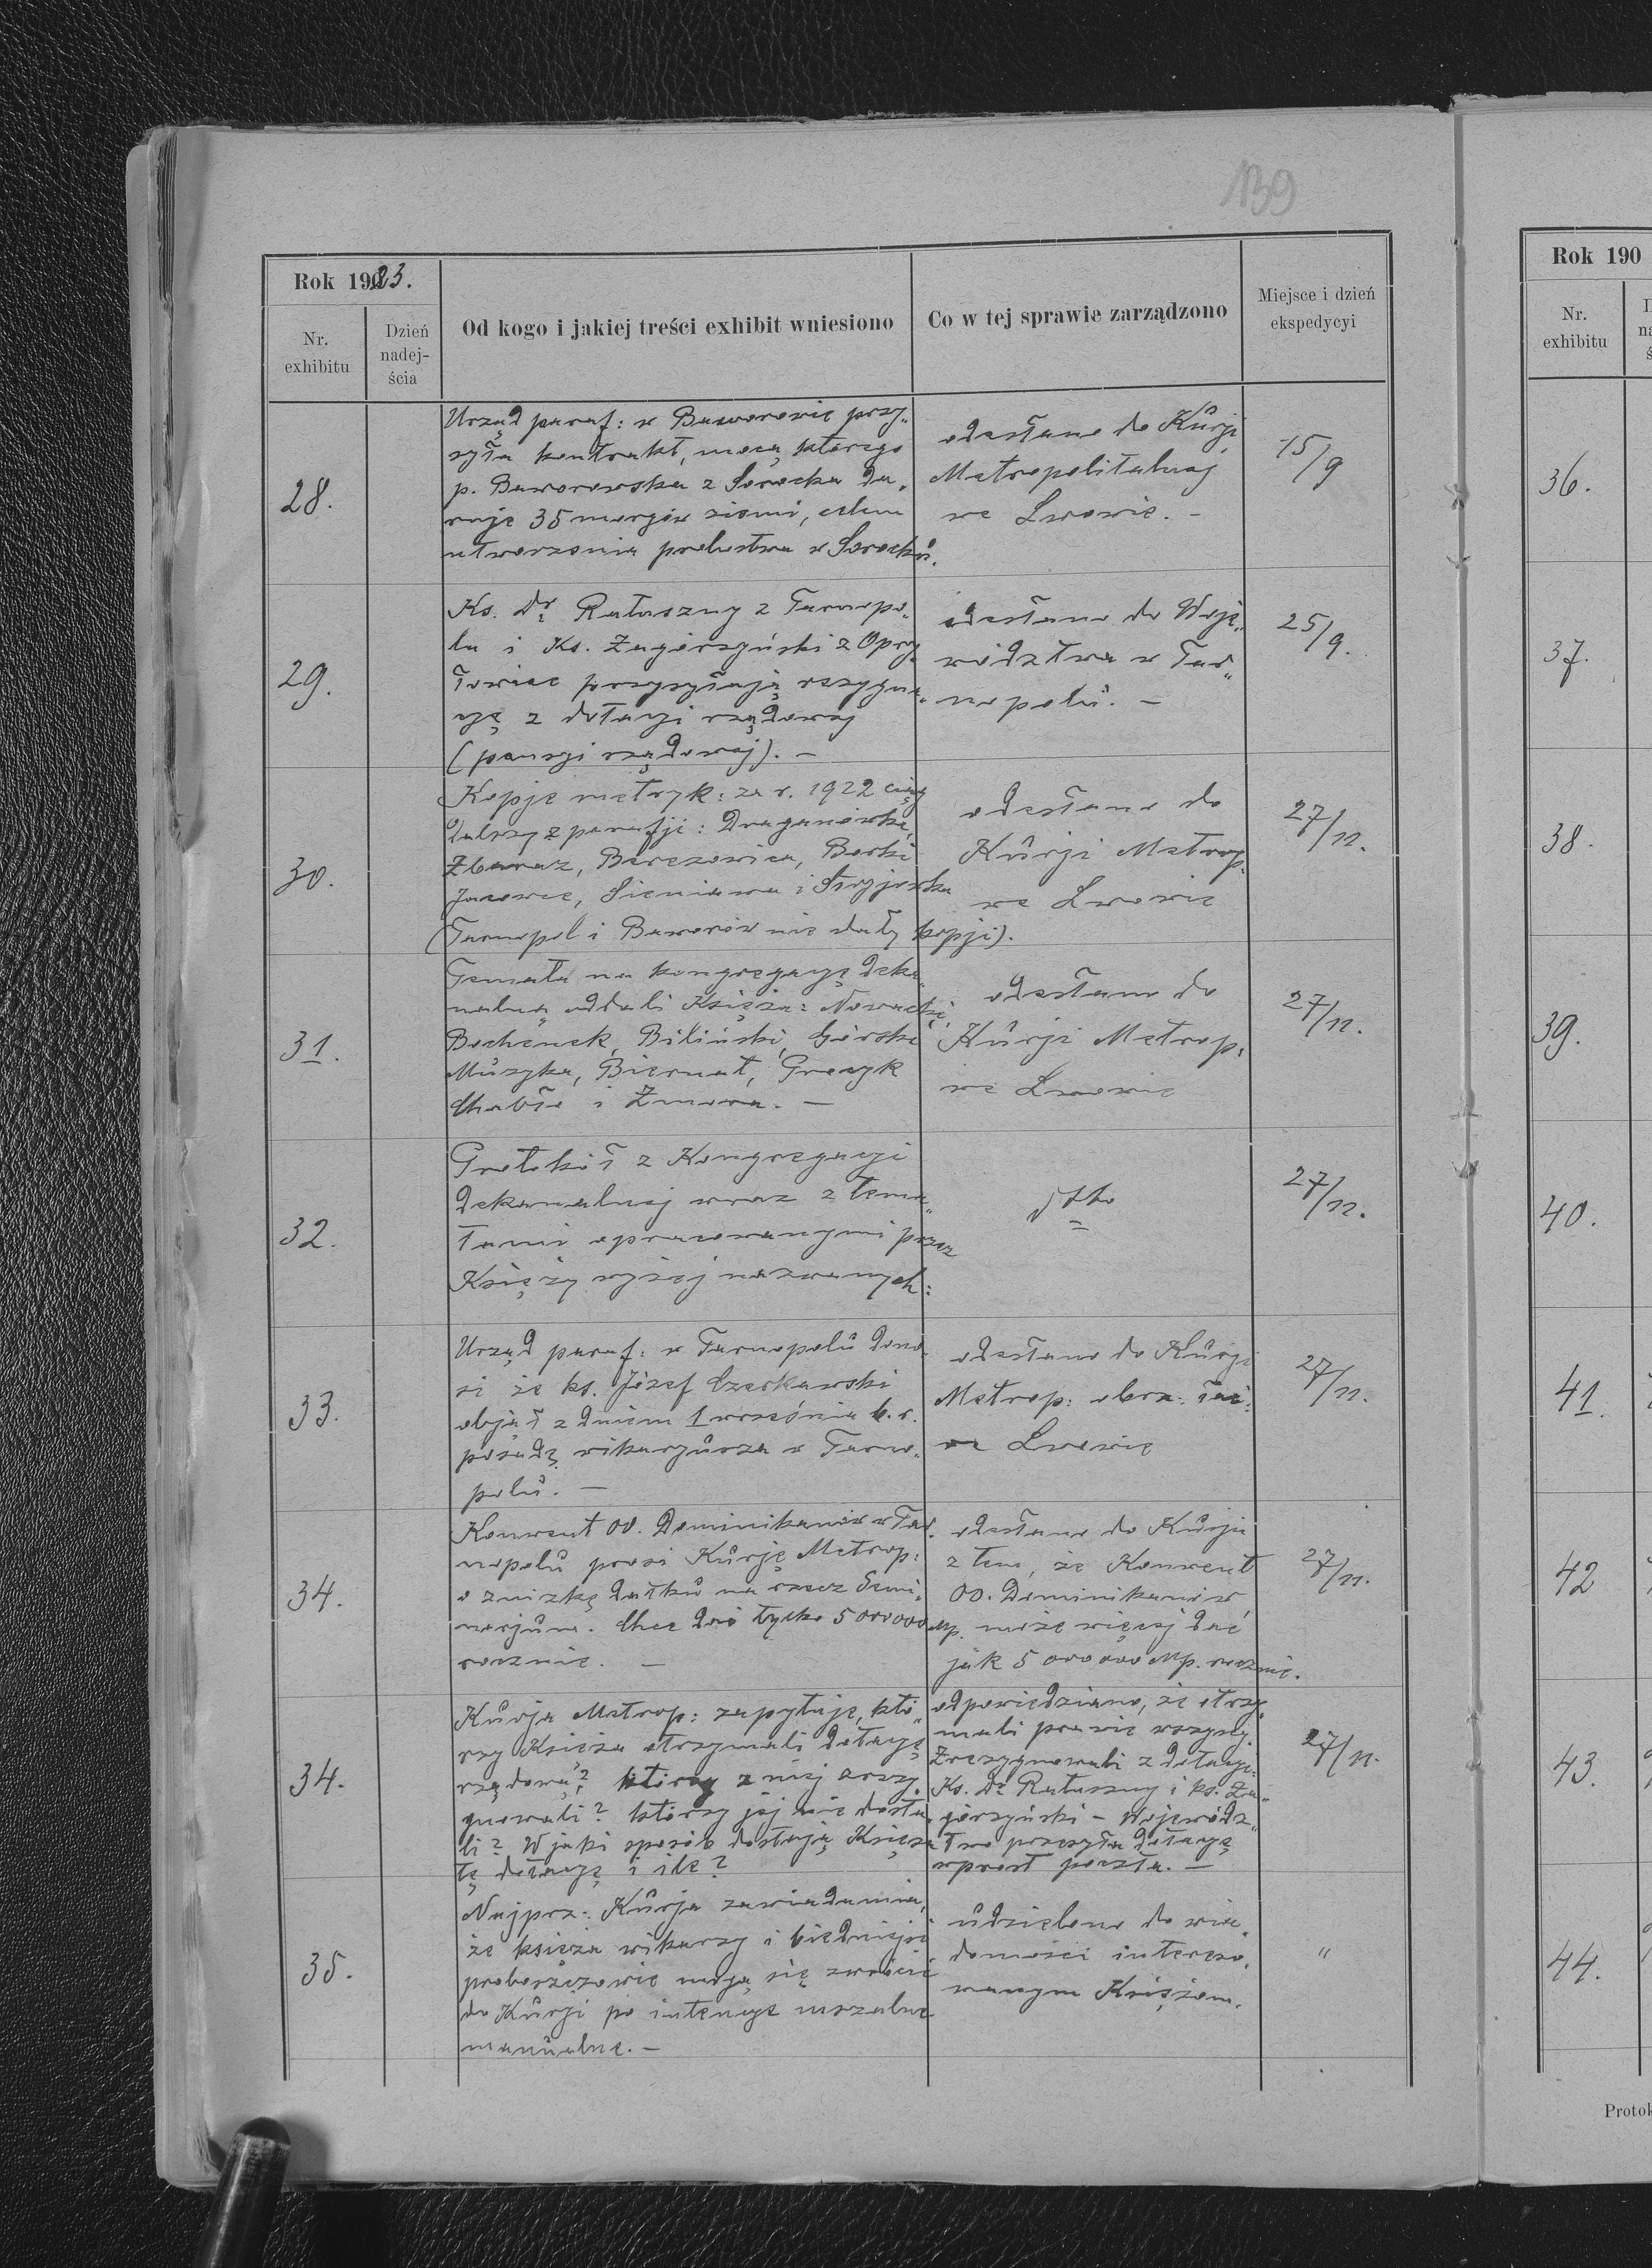 139
Rok 1923.
Nr. exhibitu
Dzień nadej-ścia
Od kogo i jakiej treści exhibit wniesiono
Co w tej sprawie zarządzono
Miejsce i dzień ekspedycyi
28.
Urząd paraf: w Baworowie przy„
syła kontrakt, mocą którego
p. Baworowska z Sorocka da„
ruje 35 morgów ziemi, celem
utworzenia probostwa w Sorocku.
odesłano do Kurji
Metropolitalnej
we Lwowie. –
15/9
29.
Ks. Dr Ratuszny z Tarnopo„
la i Ks. Zagórzyński z Opry„
łowiec przysyłają rezygna„
cję z dotacji rządowej
(pensji rządowej). –
odesłano do Woje„
wództwa w Tar„
nopolu. –
25/9.
30.
Kopje metryk: za r. 1922 ciąg
dalszy z parafji: Draganówka,
Zbaraż, Berezowica, Borki
Jacowce, Sieniawa i Stryjówka
(Tarnopol i Baworów nie dały kopji).
odesłano do
Kurji Metrop.
we Lwowie
27/11.
31.
Temata na kongregację deka„
nalną oddali Księża: Nowacki,
Bochenek, Biliński, Górski
Muzyka, Biernat, Grecyk
Chabło i Żmora. –
odesłano do
Kurji Metrop:
we Lwowie
27/11.
32.
Protokół z Kongregacji
dekanalnej wraz z tema„
tami opracowanymi przez
Księży wyżej nazwanych:
dtto
27/11.
33.
Urząd paraf: w Tarnopolu dono„
si że ks. Józef Czerkawski
objął z dniem 1 września b. r.
posadę wikarjusza w Tarno„
polu. –
odesłano do Kurji
Metrop: obrz: łać:
we Lwowie
27/11.
34.
Konwent OO. Dominikanów w Tar„
nopolu prosi Kurję Metrop:
o zniżkę datku na rzecz Semi„
narjum. Chce dać tylko 5 000 000 Mp.
rocznie. –
odesłano do Kurji
z tem, że Konwent
OO. Dominikanów
może więcej dać
jak 5 000 000 Mp. rocznie.
27/11.
34.
Kurja Metrop: zapytuje, któ„
rzy Księża otrzymali dotację
rządową? którzy z niej zrezy„
gnowali? którzy jej nie dosta„
li? W jaki sposób dostają Księża
tę dotację i ile?
odpowiedziano, że otrzy„
mali prawie wszyscy.
Zrezygnowali z dotacji:
Ks. Dr Ratuszny i ks. Za„
górzyński – Wojewódz„
two przesyła dotację
wprost pocztą. –
27/11.
35.
Najprz: Kurja zawiadamia,
że księża wikarzy i biedniejsi
proboszczowie mają się zwrócić
do Kurji po intencje mszalne
manualne. –
udzielono do wia„
domości intereso„
wanym Księżom.
„
Rok 190
Nr. exhibitu
36.
37.
38.
39.
40.
41.
42
43.
44.
Protok